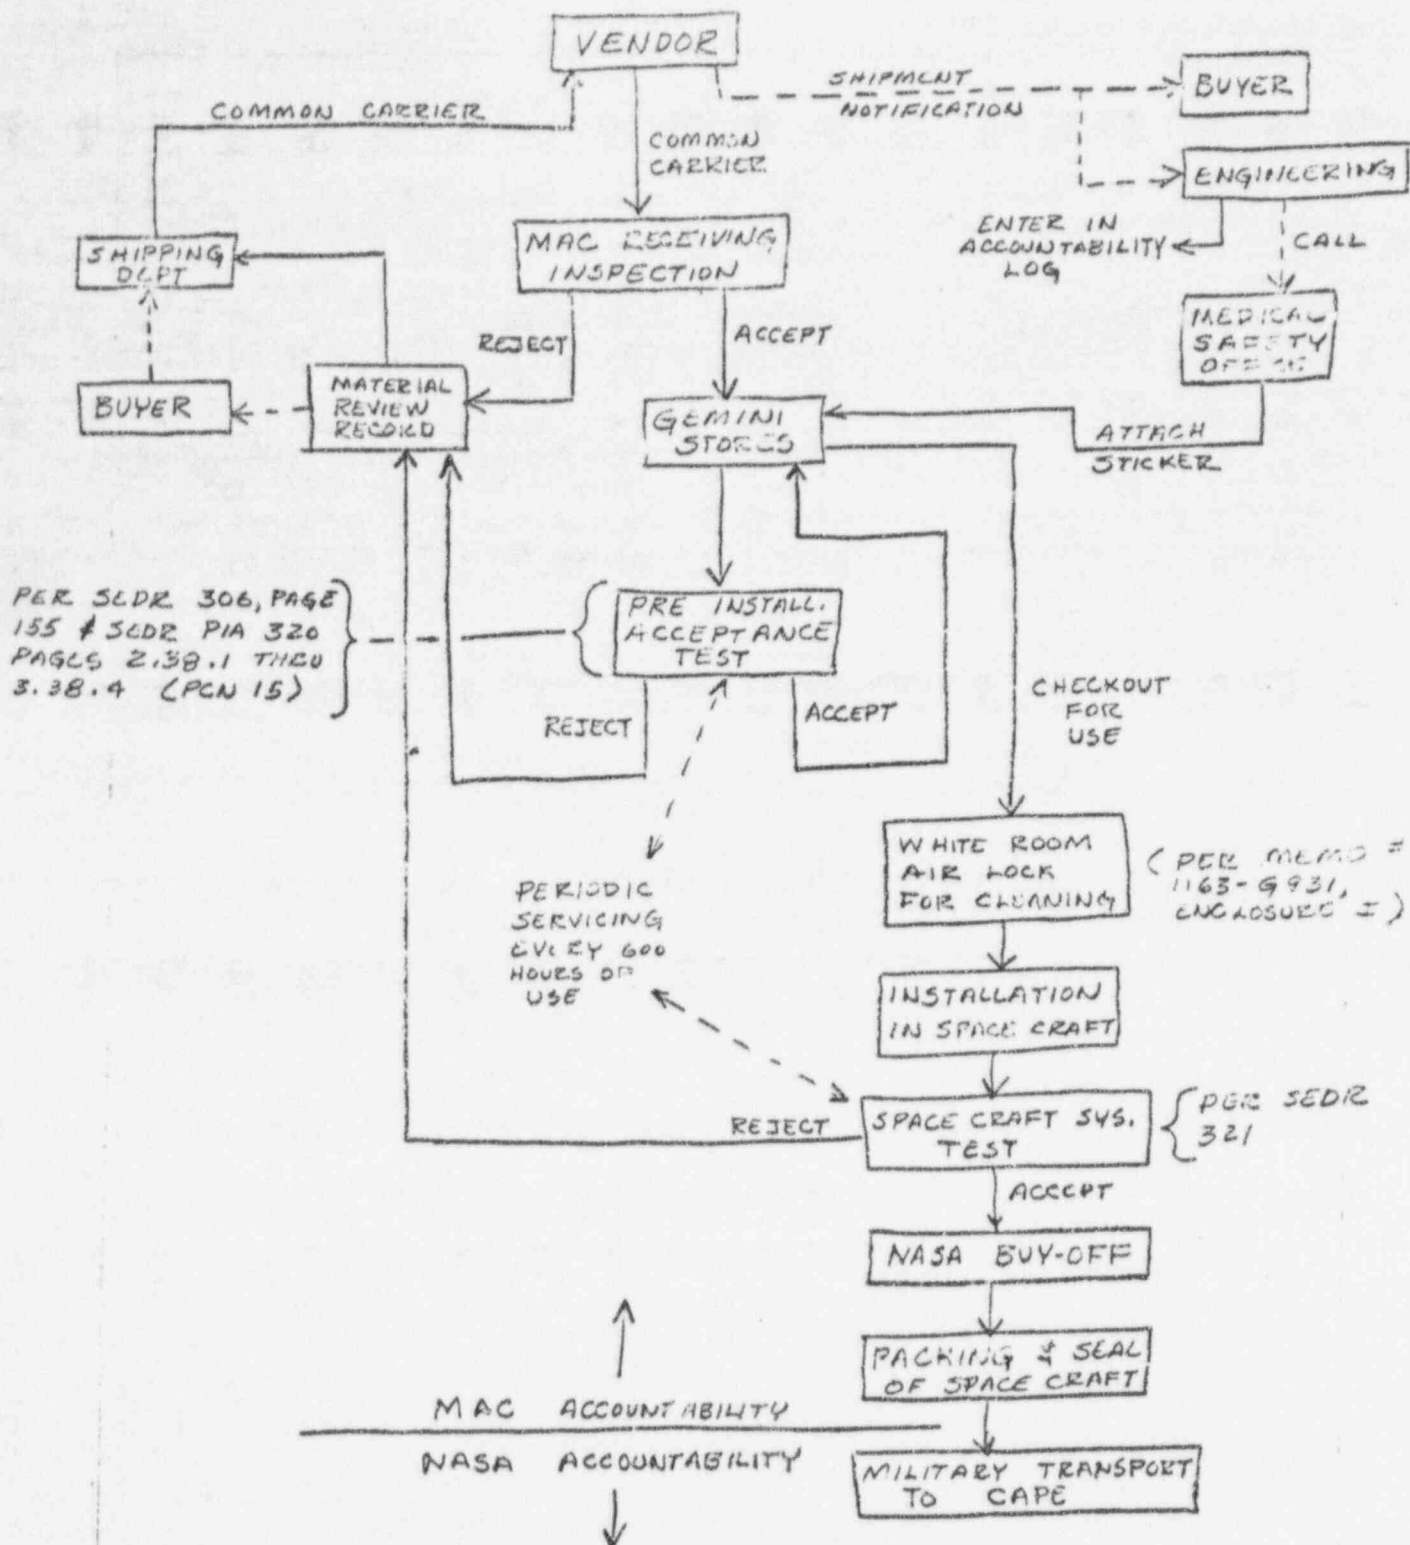 VENDOR
SHIPMENT
NOTIFICATION
BUYER
COMMON CARRIER
COMMON
CARRIER
ENGINEERING
ENTER IN
ACCOUNTABILITY
LOG
CALL
SHIPPING
DEPT
MAC RECEIVING
INSPECTION
MEDICAL
SAFETY
OFFICE
REJECT
ACCEPT
BUYER
MATERIAL
REVIEW
RECORD
GEMINI
STORES
ATTACH
STICKER
PER SEDR 306, PAGE
155 & SEDR PIA 320
PAGES 2.38.1 THRU
3.38.4 (PCN 15)
PRE INSTALL.
ACCEPTANCE
TEST
REJECT
ACCEPT
CHECKOUT
FOR
USE
PERIODIC
SERVICING
EVERY 600
HOURS OF
USE
WHITE ROOM
AIR LOCK
FOR CLEANING
(PER MEMO #
1163-G931,
ENCLOSURE I)
INSTALLATION
IN SPACE CRAFT
REJECT
SPACE CRAFT SYS.
TEST
PER SEDR
321
ACCEPT
NASA BUY-OFF
PACKING & SEAL
OF SPACE CRAFT
MAC ACCOUNTABILITY
NASA ACCOUNTABILITY
MILITARY TRANSPORT
TO CAPE